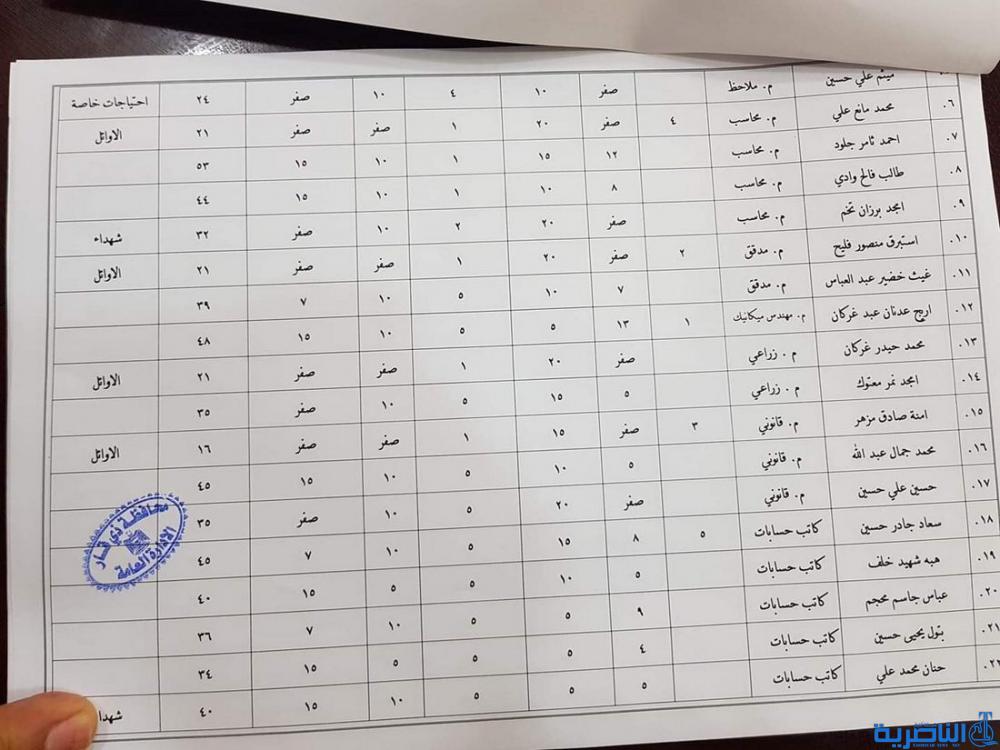 ميثم علي حسين م. ملاحظ صفر ١٠ ٤ ١٠ صفر ٢٤ احتياجات خاصة
٦. محمد مانع علي م. محاسب ٤ صفر ٢٠ ١ صفر صفر ٢١ الاوائل
٧. احمد ثامر جلود م. محاسب ١٢ ١٥ ١ ١٠ ١٥ ٥٣
٨. طالب فالح وادي م. محاسب ٨ ١٠ ١ ١٠ ١٥ ٤٤
٩. امجد برزان تخم م. محاسب صفر ٢٠ ٢ ١٠ صفر ٣٢ شهداء
١٠. استبرق منصور فليح م. مدقق ٢ صفر ٢٠ ١ صفر صفر ٢١ الاوائل
١١. غيث خضير عبد العباس م. مدقق ٧ ١٠ ٥ ١٠ ٧ ٣٩
١٢. اريج عدنان عبد غركان م. مهندس ميكانيك ١ ١٣ ٥ ٥ ١٠ ١٥ ٤٨
١٣. محمد حيدر غركان م. زراعي صفر ٢٠ ١ صفر صفر ٢١ الاوائل
١٤. امجد نمر معتوك م. زراعي ٥ ١٥ ٥ ١٠ صفر ٣٥
١٥. امنة صادق مزهر م. قانوني ٣ صفر ١٥ ١ صفر صفر ١٦ الاوائل
١٦. محمد جمال عبد الله م. قانوني ٥ ١٠ ٥ ١٠ ١٥ ٤٥
١٧. حسين علي حسين م. قانوني صفر ٢٠ ٥ ١٠ صفر ٣٥
١٨. سعاد جادر حسين كاتب حسابات ٥ ٨ ١٥ ٥ ١٠ ٧ ٤٥
١٩. هبه شهيد خلف كاتب حسابات ٥ ١٠ ٥ ٥ ١٥ ٤٠
٢٠. عباس جاسم محجم كاتب حسابات ٩ ٥ ٥ ١٠ ٧ ٣٦
٢١. بتول يحيى حسين كاتب حسابات ٤ ٥ ٥ ٥ ١٥ ٣٤
٢٢. حنان محمد علي كاتب حسابات ٥ ٥ ٥ ١٠ ١٥ ٤٠ شهدا
محافظة ذي قار
الادارة العامة
الناصرية